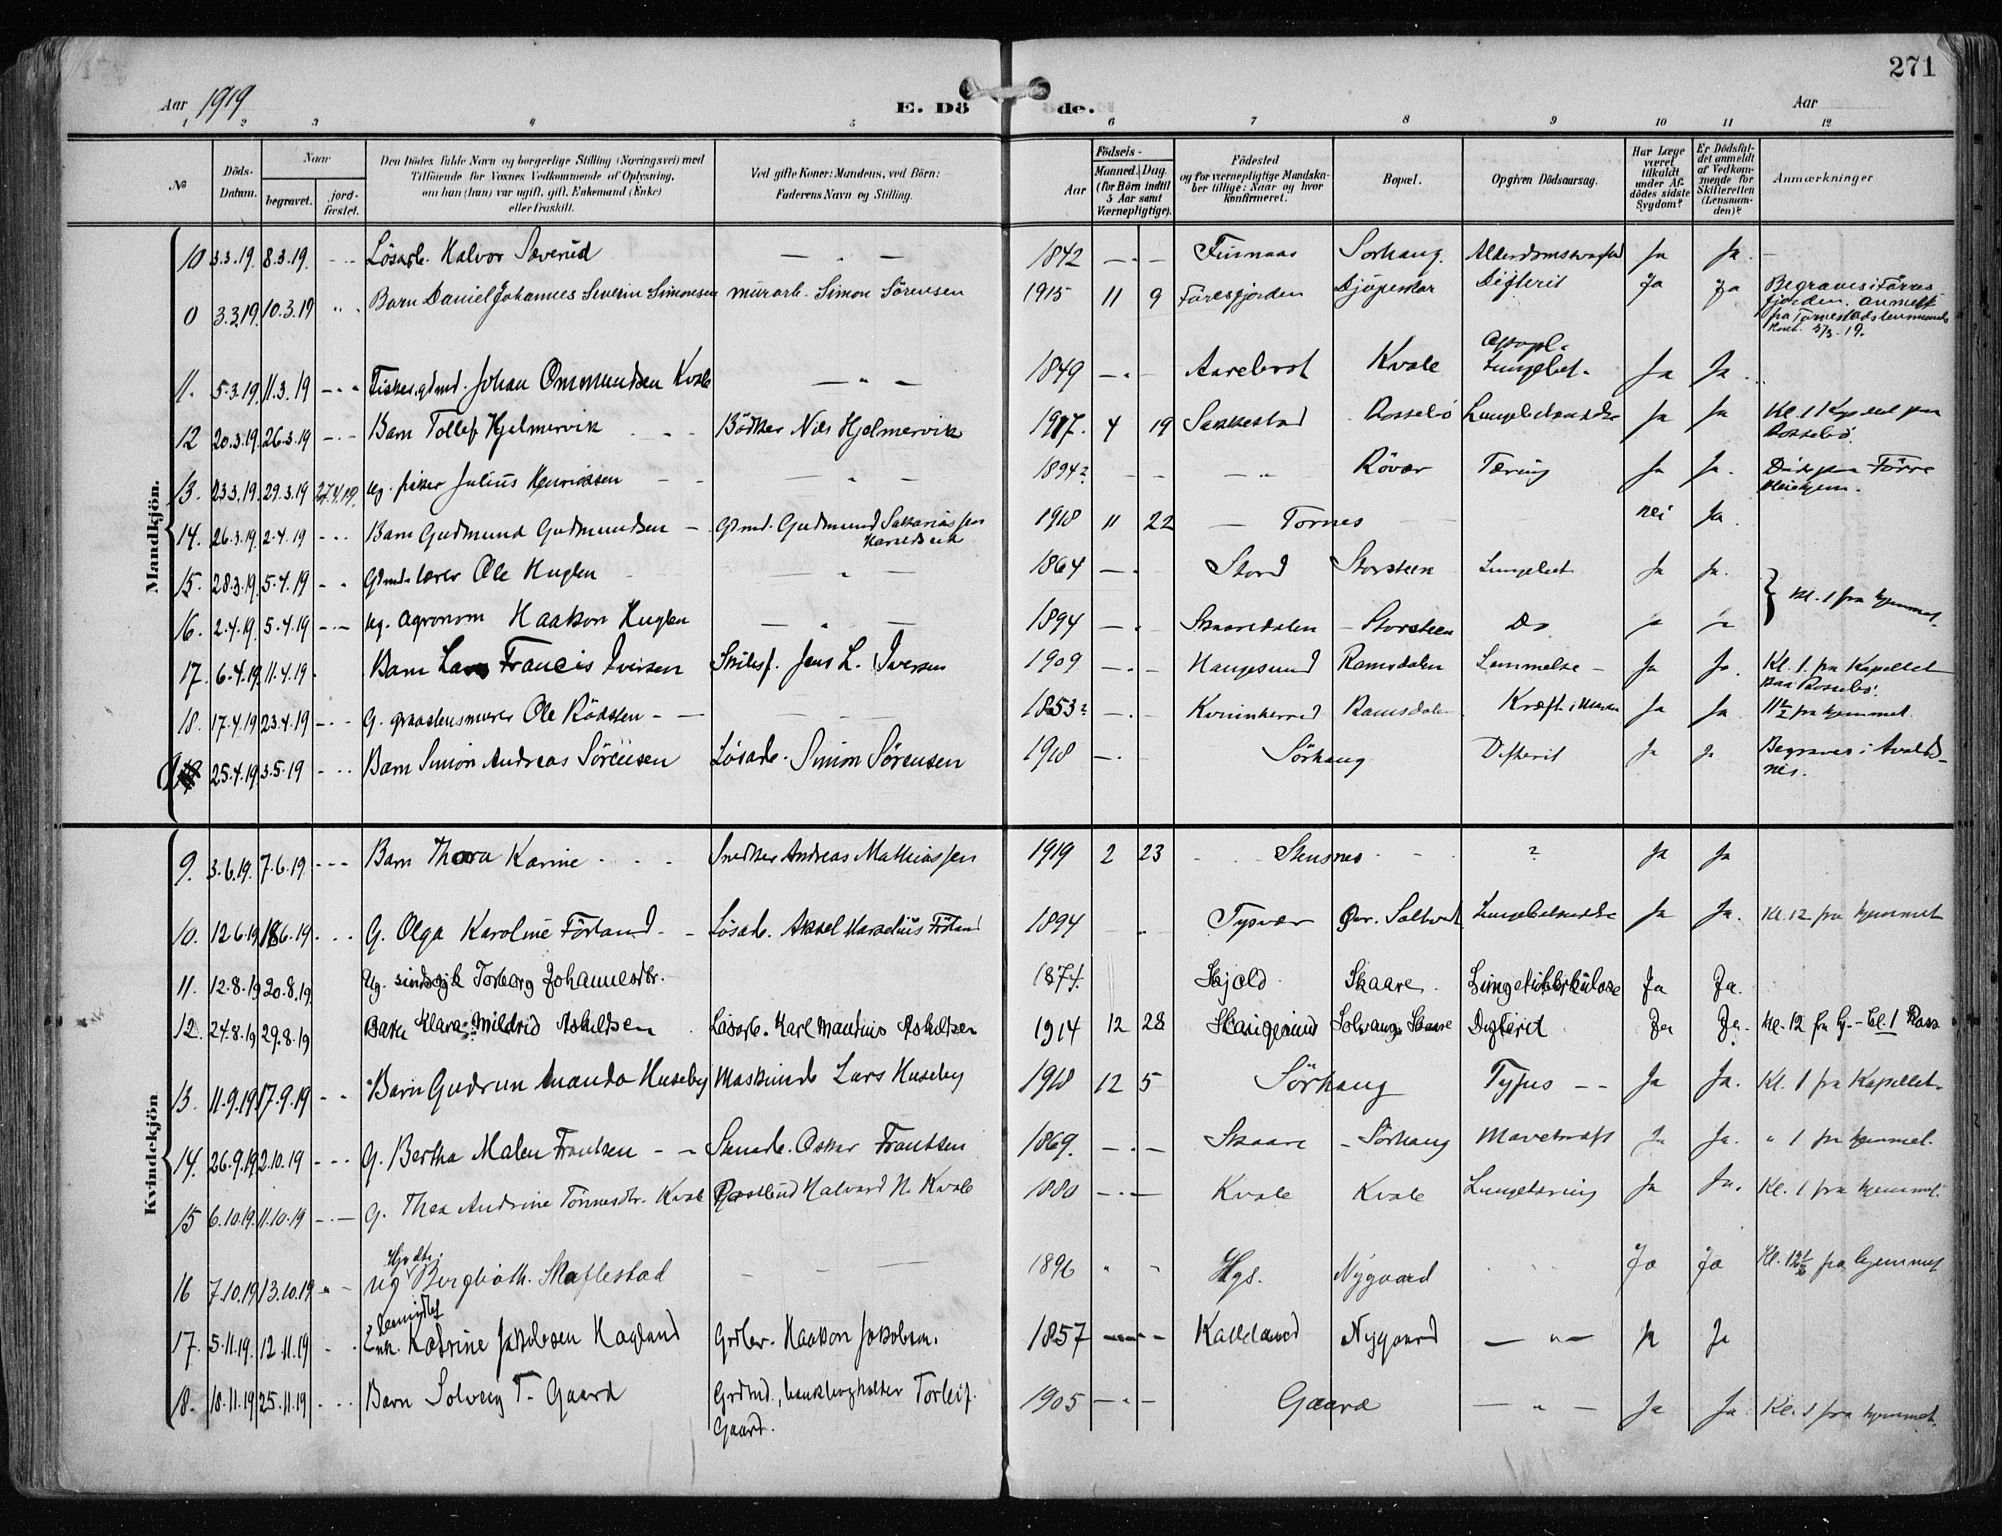 271
Aar 1919
E. Dö
de.
Aar
1 2 3 4 5 6 7 8 9 10 11 12
No
Döds-
Datum.
Naar
begravet.
jord-
fæstet.
Den Dödes fulde Navn og borgerlige Stilling (Næringsvei) med
Tilföiende for Voxnes Vedkommende af Oplysning,
om han (hun) var ugift, gift, Enkemand (Enke)
eller fraskilt.
Ved gifte Koner: Mandens, ved Börn:
Faderens Navn og Stilling.
Födsels-
Aar
Maaned. Dag.
(for Börn indtil
5 Aar samt
Værnepligtige).
Födested
og for værnepligtige Mandska-
ber tillige: Naar og hvor
konfirmeret.
Bopæl.
Opgiven Dödsaarsag.
Har Læge
været
tilkaldt
under Af-
dödes sidste
Sygdom?
Er Dödsfal-
det anmeldt
af Vedkom-
mende for
Skifteretten
(Lensman-
den)?
Anmærkninger
Mandkjön.
10 3.3.19. 8.3.19. Lösarb. Halvor Sæverud 1842 Finnaas Sörhaug. Ja Ja
0 3.3.19. 10.3.19 Barn Daniel Johannes Severin Simonsen murarb. Simon Sörensen 1915 11 9 Föresfjorden Djupeskar Difterit Ja Ja Begraves i Förres
fjorden. anmeldt
11. 5.3.19 11.3.19 Fisker, gdmd. Johan Ommundsen Kvale 1849 Kvale Lungebet. Ja Ja
12 20.3.19 26.3.19 Barn Tollef Hjelmervik Bödker Nils Hjelmervik 1917. 4 19 Sakkestad Rossebö Lungebetændelse Ja Ja Kl. 1 Kapellet paa
Rossebö.
13. 23.3.19. 29.3.19 27.4.19. ug. fisker Julius Henriksen 1894? Rövær Tæring Ja Ja. Död paa Förre
14. 26.3.19. 2.4.19 Barn Gudmund Gudmundsen Gdmd. Gudmund Sakariassen 1918 11 22 Tornes nei Ja.
15. 28.3.19. 5.4.19 Gdmd. lærer Ole Huglen 1864 Stord Storsteen Lungebet. Ja Ja.
Kl. 1 fra hjemmet.
16. 2.4.19. 5.4.19 ug. agronom Haakon Huglen 1894 Skaaredalen Storsteen Do Ja Ja
17. 6.4.19. 11.4.19 Barn Lars Francis Iversen Skibsf. Jens L. Iversen 1909 Haugesund Ramsdalen Lammelse Ja Ja. Kl. 1. fra Kapellet
paa Rossebö.
18. 17.4.19 23.4.19 G. graastensmurer Ole Rödsten 1853? Kvinnherred Ramsdalen Kræft i Maven Ja Ja. 11½ fra hjemmet.
0 25.4.19 3.5.19 Barn Simon Andreas Sörensen Lösarb. Simon Sörensen 1918 Sörhaug Difterit Ja Ja Begraves i Avalds-
nes.
Kvindekjön
9. 3.6.19. 7.6.19. Barn Thora Karine Snedker Andreas Mathiassen 1919 2 23 Stensnes ? Ja Ja
10. 12.6.19 18.6.19 G. Olga Karoline Förland Lösarb. Aksel Marselius Förland 1894 Tysvær Lungebetændelse Ja Ja. Kl. 12 fra hjemmet
11. 12.8.19 20.8.19 Ug. sindssyk Torborg Johannesdtr. 1874. Skjold Skaare. Lungetuberkulose Ja Ja.
12. 24.8.19 29.8.19 Barn Klara Mildrid Askildsen Lösarb. Karl Mandius Askildsen 1914 12 28 Haugesund Solvang Skaare Difterit Ja Ja. Kl. 12 fra hj. - Kl. 1 Ross
13. 11.9.19. 17.9.19 Barn Gudrun Amanda Huseby Maskinarb. Lars Huseby 1918 12 5 Sörhaug Tyfus Ja Ja. Kl. 1 fra Kapellet.
14. 26.9.19. 2.10.19 G. Bertha Malen Frantzen Stenarb. Oskar Frantzen 1869. Skaare Sörhaug Mavekræft Ja Ja. " 1 fra hjemmet.
15 6.10.19. 11.10.19 G. Thea Andrine Tönnesdtr. Kvale Postbud Halvard N. Kvale 1880 Kvale Kvale Lungetæring Ja Ja. Kl. 1 fra hjemmet.
16 7.10.19 13.10.19 ug. Berglioth Skeflestad 1896 Hgs. Nygaard Ja Ja Kl. 12½ fra hjemmet
17. 5.11.19. 12.11.19 Enk. Katrine Jakobsen Hagland Grdbr. Haakon Jakobsen. 1857 Kalleland Nygaard Ja Ja
18. 18.11.19 25.11.19 Barn Solveig T. Gaard Grdmd., bankbogholder Torleif 1905 Gaard Ja Ja Kl. 1 fra hjemmet.
Gaard.